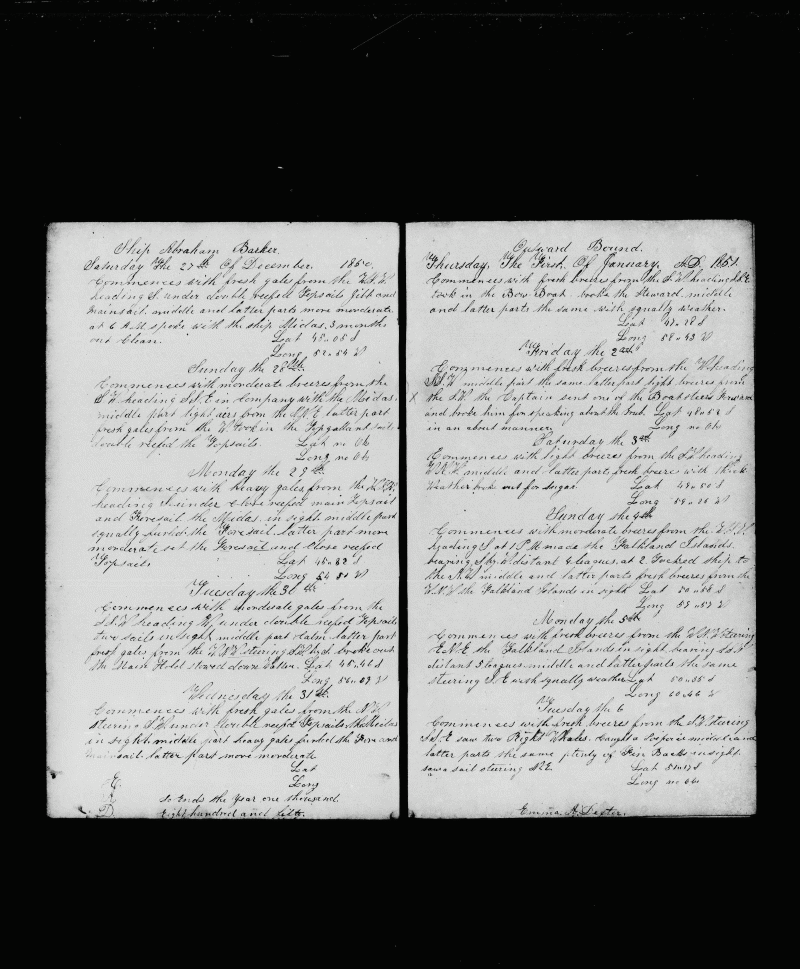 Ship Abraham Barker.
Saturday The 27th Of December. 1850.
Commences with fresh gales from the W.S.W
heading S. under double reefed Topsails Jibb and
mainsail. middle and latter parts more moderate.
at 6 A.M spoke with the ship Midas. 3 months
out Clean. Lat 45-05 S
Long 52-54 W
Sunday the 28th.
Commences with moderate breezes from the
S.W. heading in company with the Midas.
middle part light airs from the latter part
fresh gales from the W took in the Topgallant sails
double reefed the Topsails. Lat no Ob
Long no Ob
Monday the 29th
Commences with heavy gales from the
heading S. under Close reefed main Topsail
and Foresail the Midas. in sight. middle part
squally furled the Foresail. latter part more
moderate set the Foresail and Close reefed
Topsails. Lat
Long 54 W
Tuesday the 30th
Commences with moderate gales from the
S.S.W heading W, under double reefed Topsails
two sails in sight. middle part Calm. latter part
fresh gales from the steering broke out
the Main Hold stowed down Water. Lat 45-46 S
Long 56-09 W
Wednesday the 31st.
Commences with fresh gales from the N.W
steering S.W. under double reefed Topsails the Midas
in sight. middle part heavy gales furled the Fore and
mainsail. latter part more moderate
Lat
E. Long
So Ends the Year one thousand.
D. Eight hundred and fifty.
Outward Bound.
Thursday. The First. Of January. A.D. 1851.
Commences with fresh breezes from the S.W. heading S.E
took in the Bow Boat. broke the Steward. middle
and latter parts the same with squally weather.
Lat 47-18 S
Long 58-43 W
Friday the 2nd
Commences with fresh breezes from the W. heading
S.S.W middle part the same. latter part light breezes from
X the S.W the Captain sent one of the Boatsteerers Forward
and broke him for speaking about the boat. Lat 48-52 S
in an about manner. Long no Ob
Saturday the 3rd
Commences with light breezes from the S.W. heading
middle and latter parts fresh breeze with thick
weather. broke out for Sugar. Lat 49-50 S
Long W
Sunday the 4th
Commences with moderate breezes from the
heading S at 1 P.M made the Falkland Islands.
bearing S by E distant 4 leagues. at 2 Tacked ship to
the N.W middle and latter parts fresh breezes from the
W.N.W the Falkland Islands in sight Lat 50-56 S
Long 59-57 W
Monday the 5th
Commences with fresh breezes from the W.N.W steering
E.N.E the Falkland Islands in sight. bearing
distant 5 leagues. middle and latter parts the same
steering S.E with squally weather. Lat 50-35 S
Long 60-46 W
Tuesday the 6
Commences with fresh breezes from the S.W steering
S.S.E saw two Right Whales. Caught a Porpoise middle and
latter parts the same plenty of Fin Backs in sight.
saw a sail steering N.E. Lat 51-17 S
Long no Ob
Emma A. Dexter.